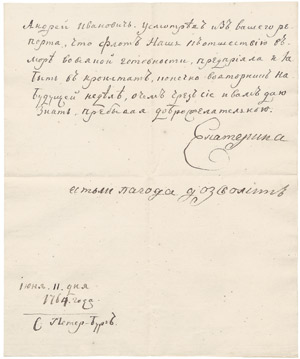 Андрей Ивановичъ. Усмотрѣвъ изъ вашего ре-
порта, что флотъ Нашъ къ отшествію въ
море во всякой готовности, предпріяла я ѣха
тить въ кронштатъ, конечно во вторникъ на
будущей недѣлѣ, о чѣмъ чрезъ сіе и вамъ даю
знать, пребывая доброжелательною.
Екатерина
естьли пагода дозволитъ
іюня. 11. дня
1764 года
С Петер-Бургъ.